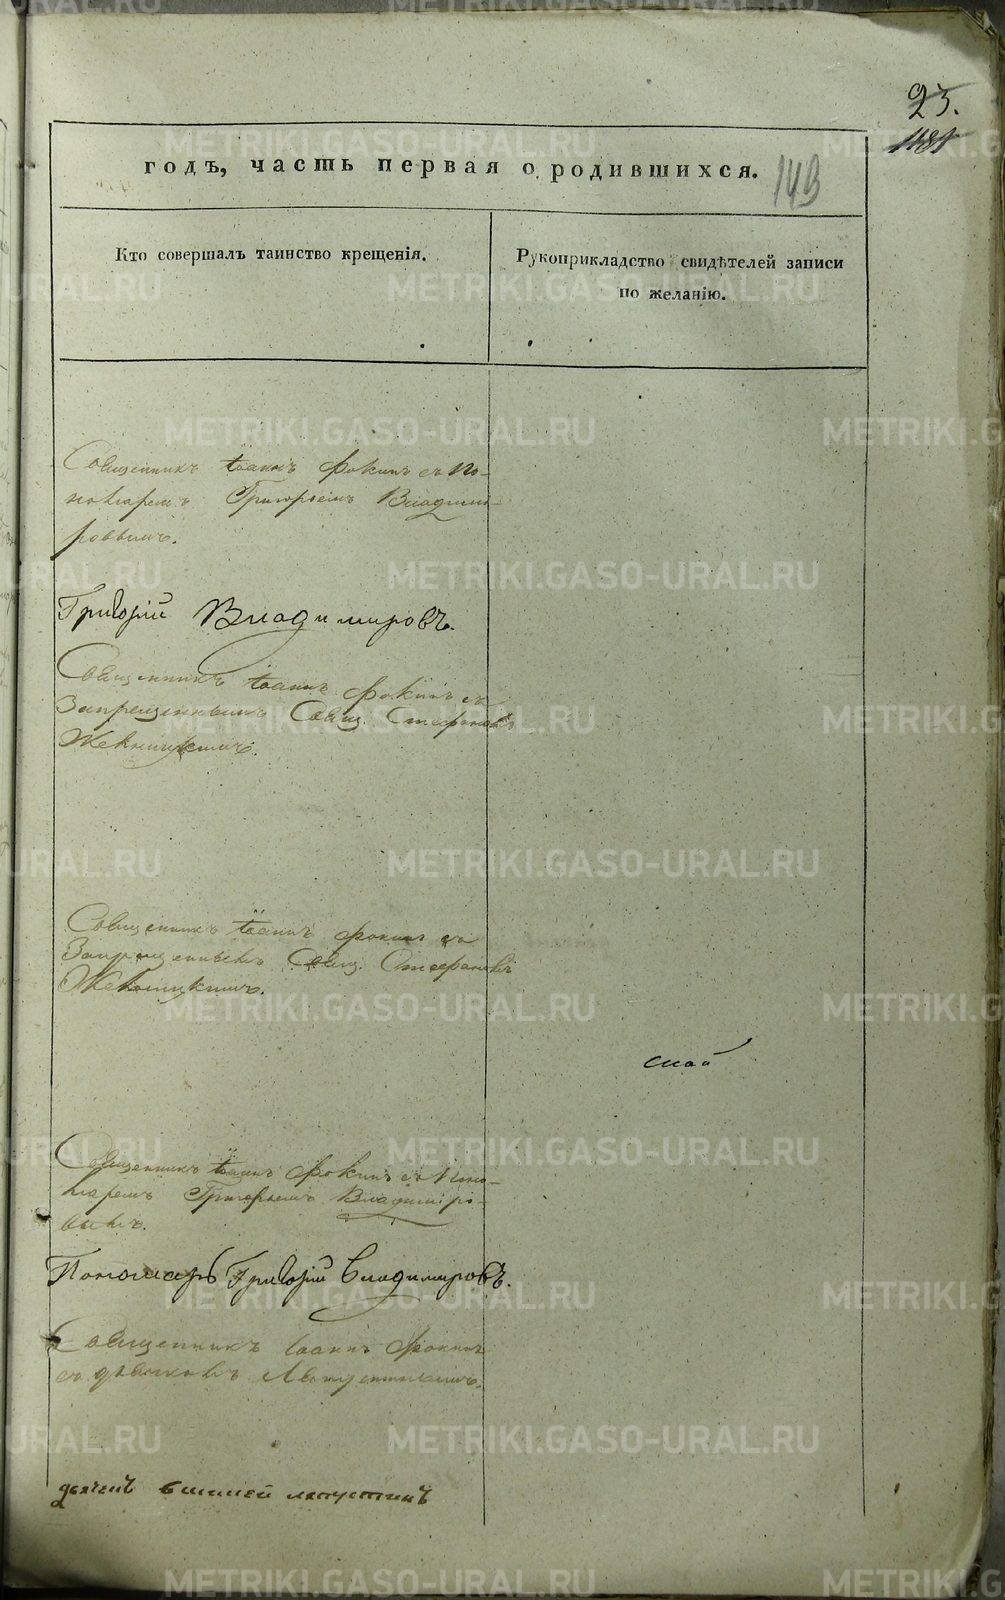 23.
1181
годъ, часть первая о родившихся.
149
Кто совершалъ таинство крещенія.
Рукоприкладство свидѣтелей записи
по желанію.
Священникъ Іоаннъ Фокинъ съ По-
номаремъ Григорьемъ Владими-
ровымъ.
Григорій Владимировъ.
Священникъ Іоаннъ Фокинъ съ
Запрещеннымъ Свящ. Стефаномъ
Священникъ Іоаннъ Фокинъ съ
Запрещеннымъ Свящ. Стефаномъ
Священникъ Іоаннъ Фокинъ съ Поно-
маремъ Григорьемъ Владиміро-
вымъ.
Пономарь Григорій Владимировъ.
Священникъ Іоаннъ Фокинъ
съ дьячкомъ Лапустинымъ.
лапустинъ
METRIKI.GASO-URAL.RU